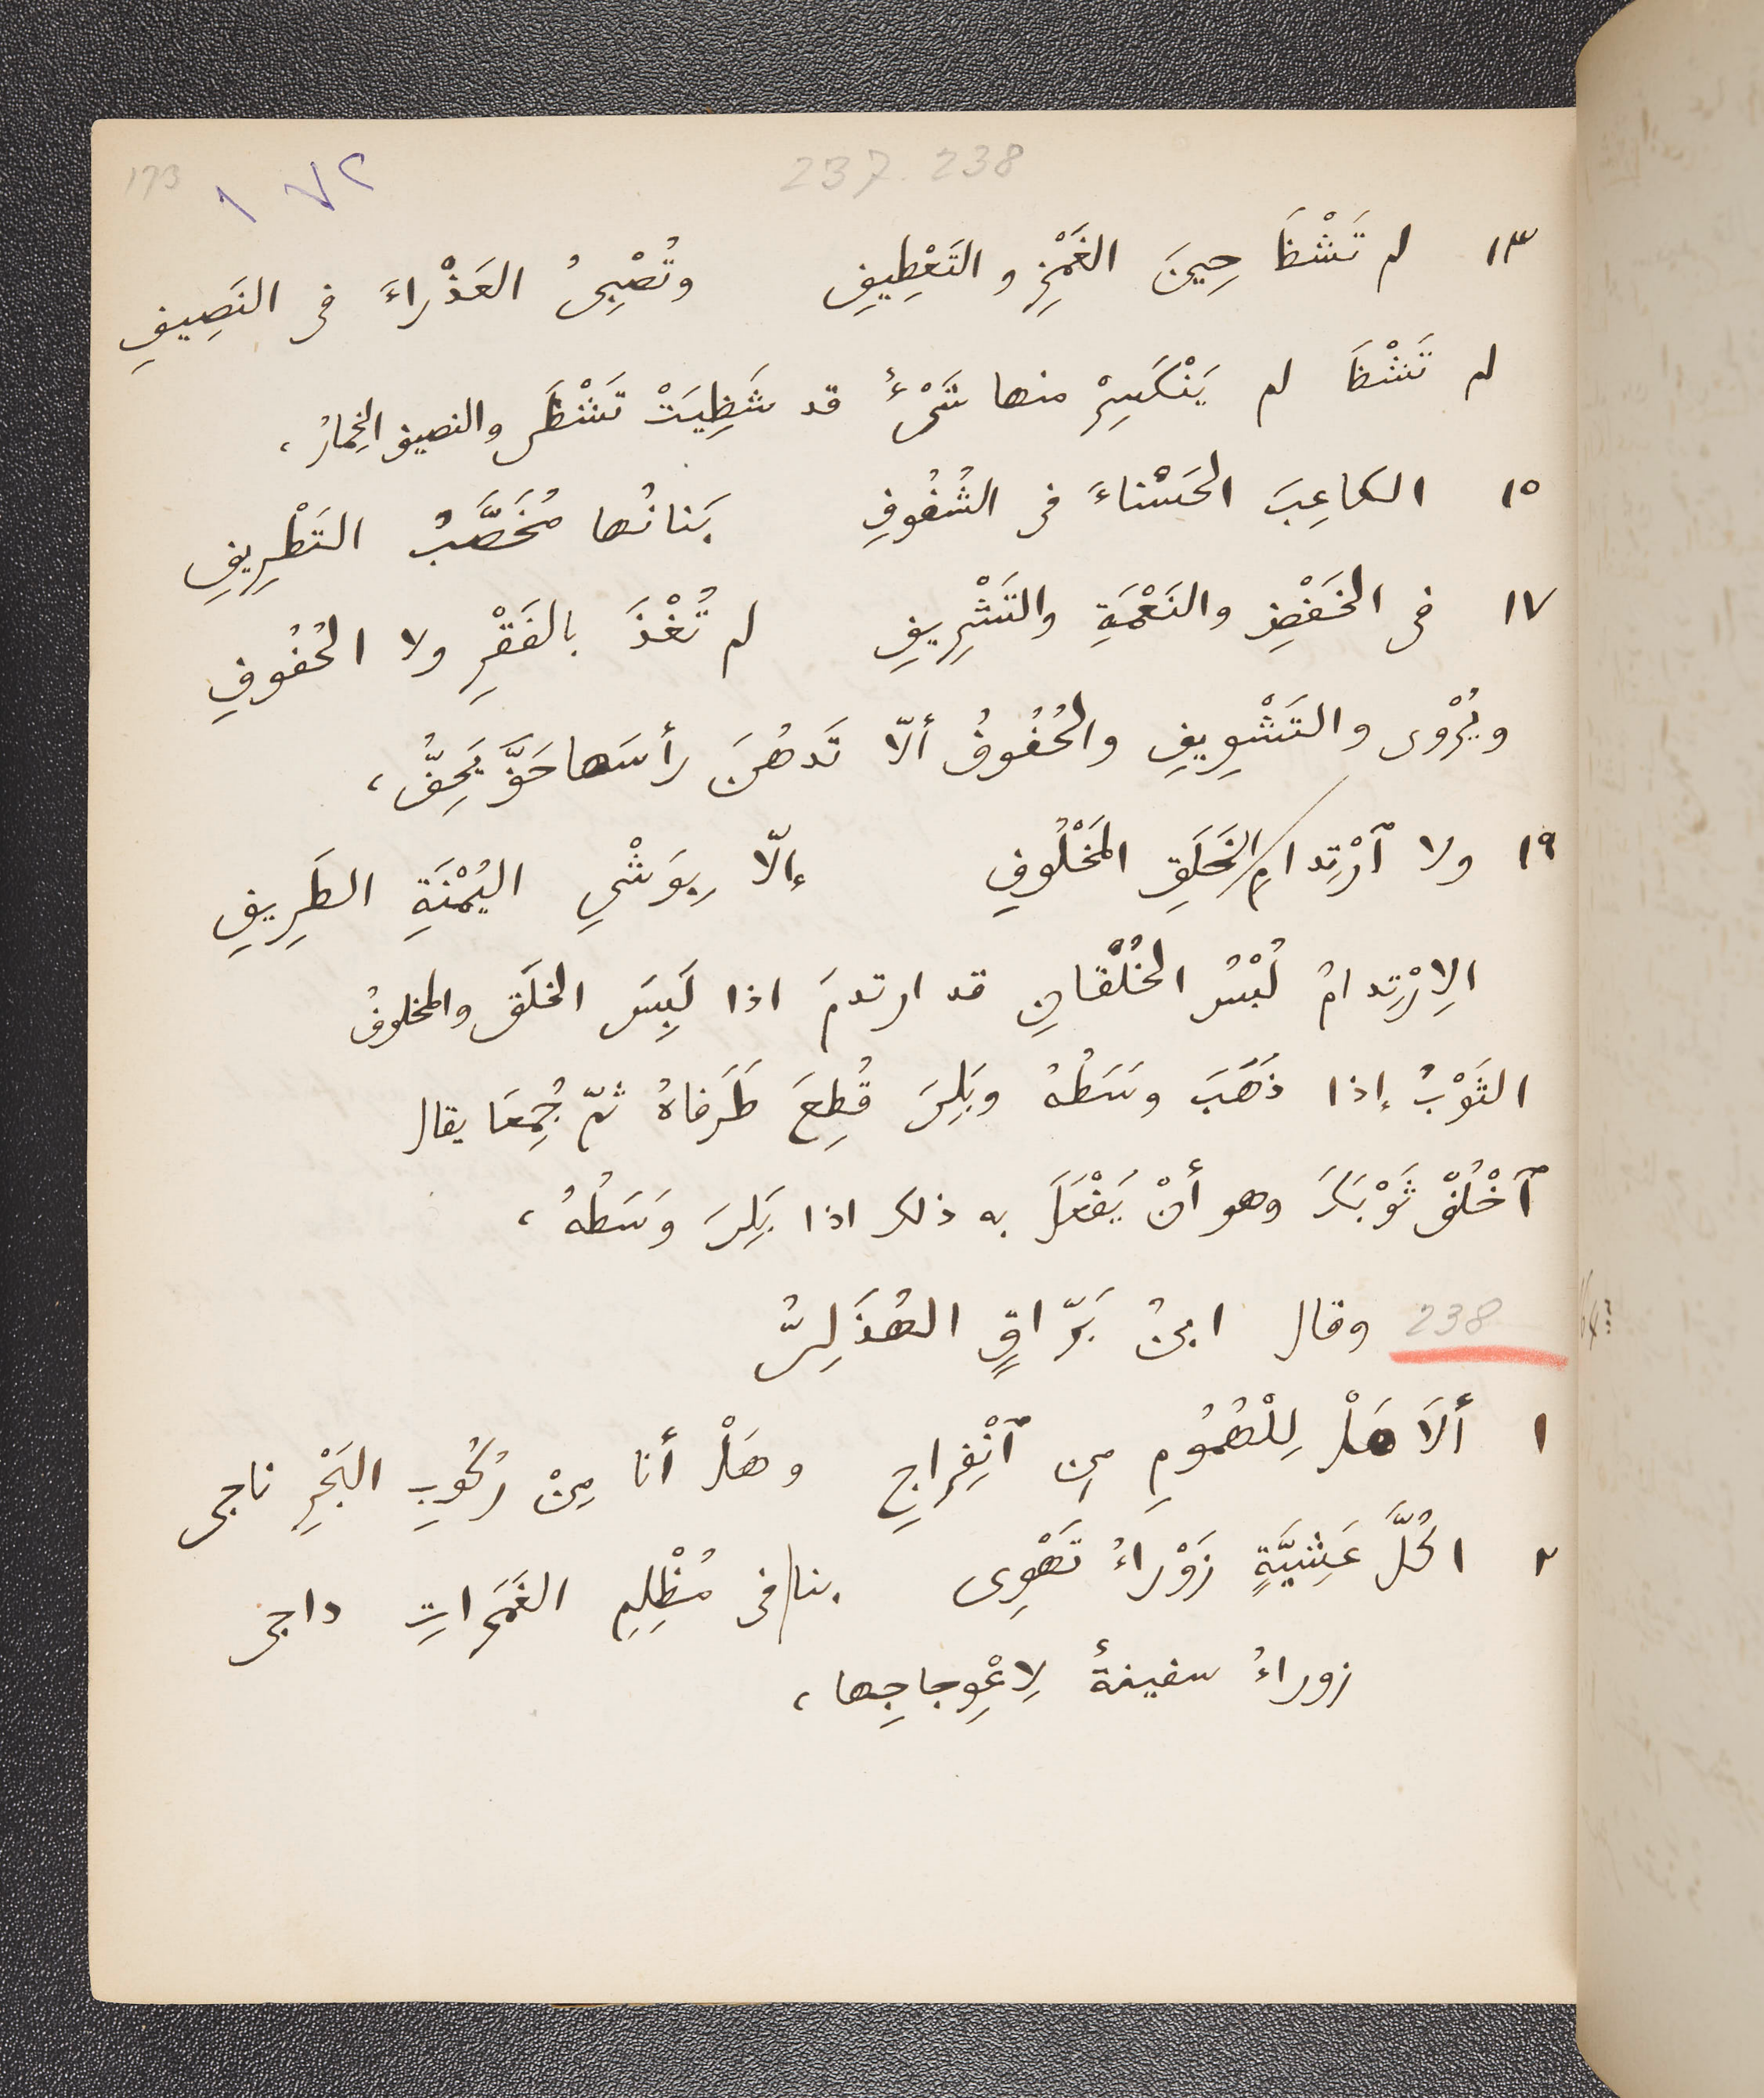 173 ١٧٢ 237. 238
١٣ لم تَشْظَا حِينَ الغَمْزِ والتَعْطِيفِ وتُصْبِىُ العَذْراءَ فى النَصِيفِ
لم تَشْظَا لم يَنْكَسِرْ منها شَىْءٌ قد شَظِيَتْ تَشْظَى والنصيف الخِمارُ،
١٥ الكاعِبَ الحَسْناءَ فى الشُفُوفِ بَنانُها مُخَضَّبُ التَطْرِيفِ
١٧ فى الخَفْضِ والنَعْمَةِ والتَشْرِيفِ لم تُغْذَ بالفَقْرِ ولا الحُفُوفِ
ويُرْوى والتَشْوِيفِ والحُفُوفُ ألّا تَدهُنَ رأسَها حَفَّ يَحِفُّ،
١٩ ولا ٱرْتِدامِ الخَلَقِ المَخْلُوفِ إلّا بِوَشْىِ اليُمْنَةِ الطَرِيفِ
الِارْتِدامُ لُبْسُ الخُلْقانِ قد ارتدمَ اذا لَبِسَ الخلَق والمخلوفُ
الثَوْبُ إذا ذَهَبَ وسَطُهُ وبَلِىَ قُطِعَ طَرَفاهُ ثمّ جُمِعَا يقال
ٱخْلُفْ ثَوْبَكَ وهو أنْ يَفْعَلَ به ذلك اذا بَلِىَ وَسَطُهُ،
238 وقال ابنُ بَرّاقٍ الهُذَلِىُّ
١ ألَا هَلْ لِلْهُمُومِ مِنِ ٱنْفِراجِ وهَلْ أنا مِنْ رُكُوبِ البَحْرِ ناجى
٢ اكُلَّ عَشِيَّةٍ زَوْراءُ تَهْوِى بنا فى مُظْلِمِ الغَمَراتِ داجى
زوراءُ سفينةٌ لِاعْوِجاجِها،